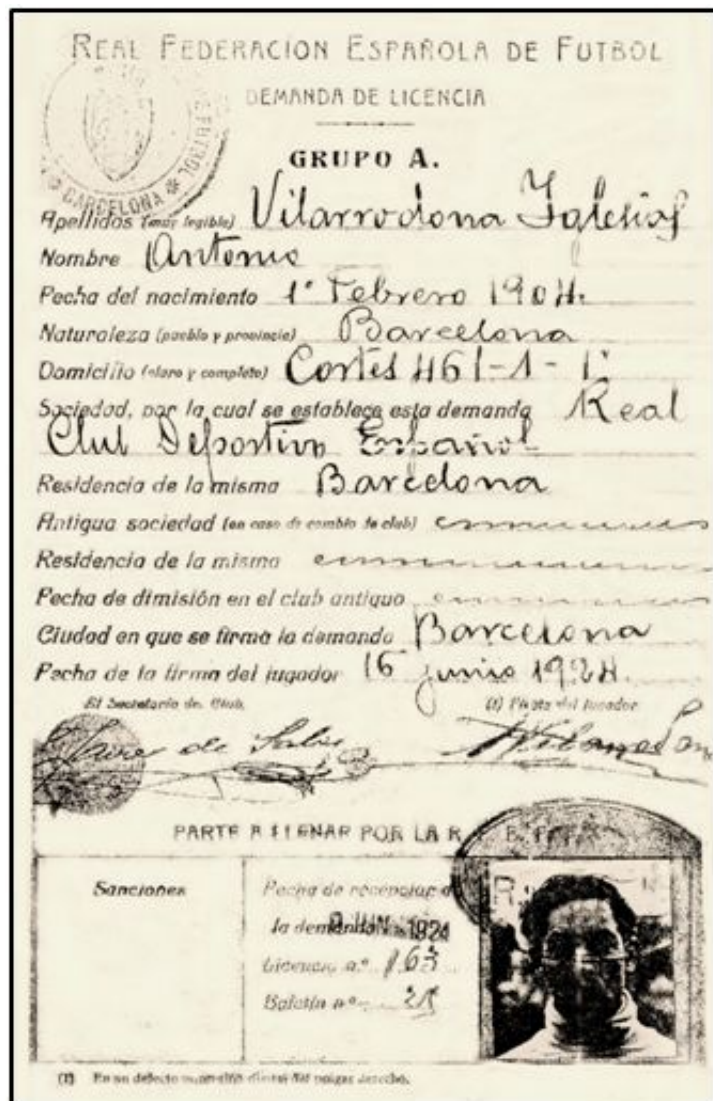 REAL FEDERACION ESPAÑOLA DE FUTBOL
DEMANDA DE LICENCIA
GRUPO A.
FUTBOL
BARCELONA
Apellidos (muy legible) Vilarrodona Iglesias
Nombre Antonio
Fecha del nacimiento 1º Febrero 1904.
Naturaleza (pueblo y provincia) Barcelona
Domicilio (claro y completo) Cortés 461-1-1ª
Sociedad, por la cual se establece esta demanda Real
Club Deportivo Español
Residencia de la misma Barcelona
Antigua sociedad (en caso de cambio de club)
Residencia de la misma
Fecha de dimisión en el club antiguo
Ciudad en que se firma la demanda Barcelona
Fecha de la firma del jugador 16 junio 1924.
El Secretario del Club. (1) Firma del Jugador
PARTE A LLENAR POR LA R
Sanciones
Fecha de recepción de
la demanda JUN 1924
Licencia n.º 163
Boletín n.º 25
(1) En su defecto impresión digital del pulgar derecho.